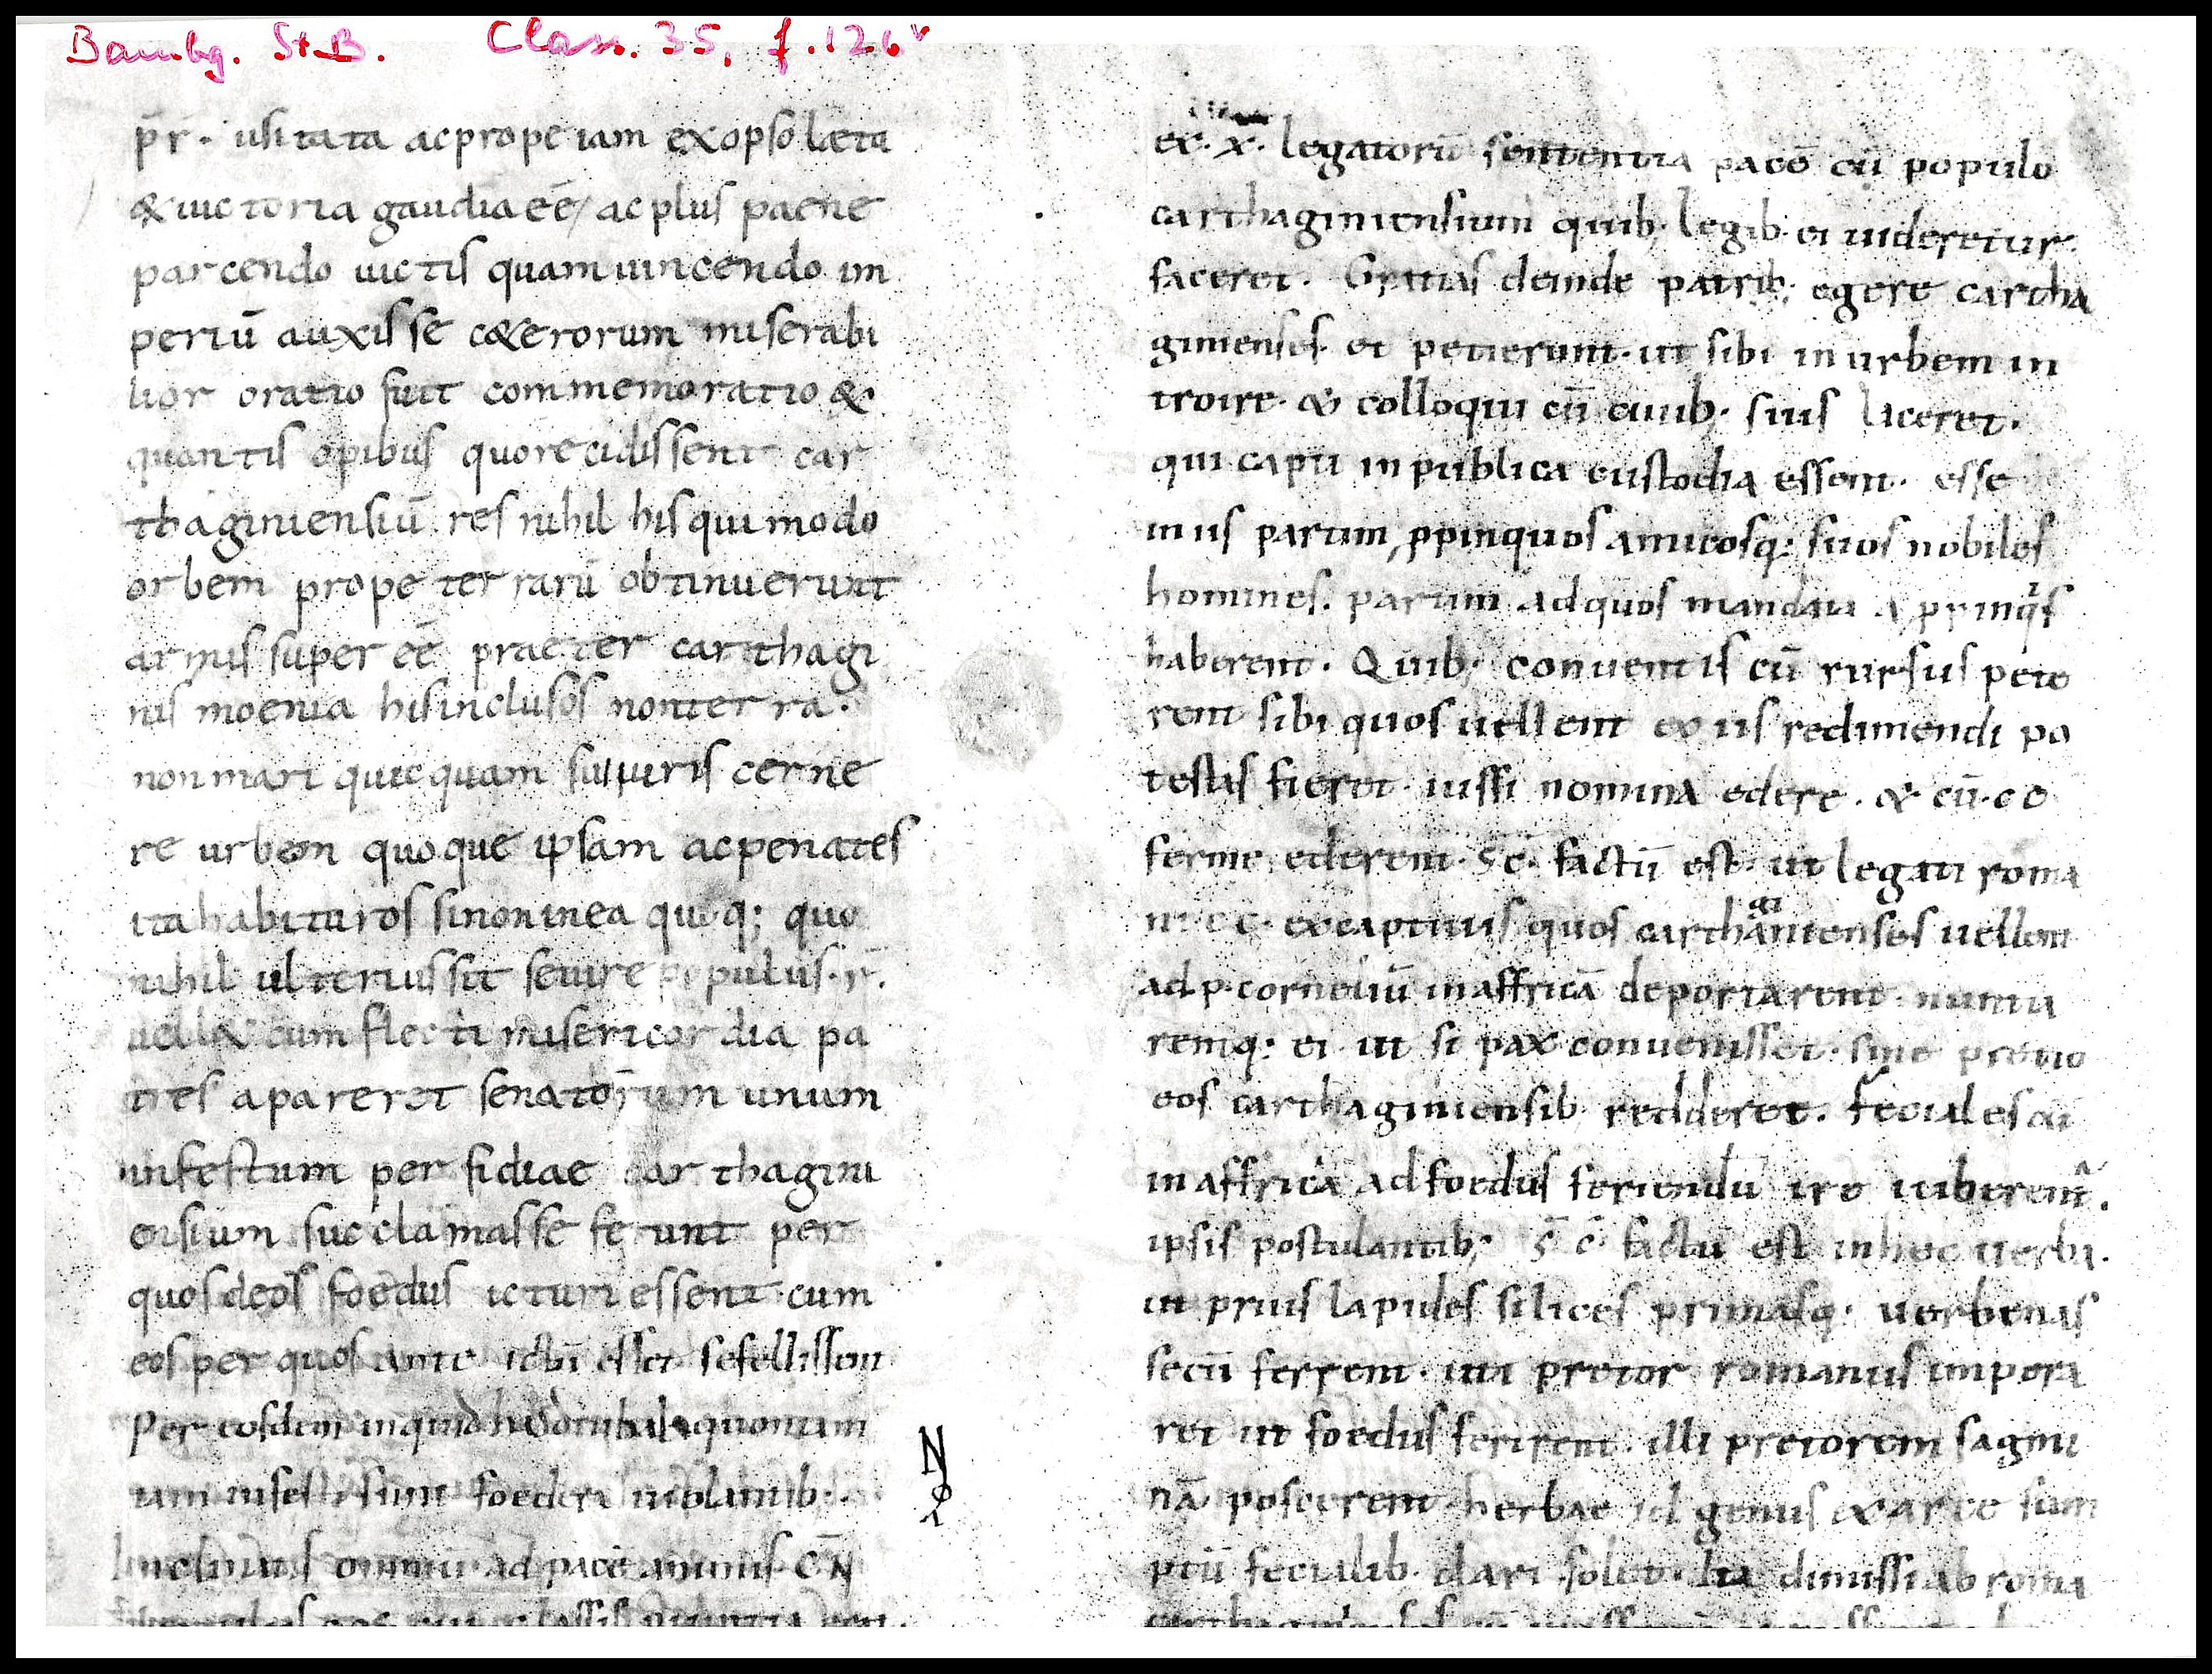 Bambg. St.B. Class. 35, f. 126v
p̄r· usitata ac prope iam exopsolæta
& uictoria gaudia eē/ ac plus paene
parcendo uictis quam uincendo im
periū auxisse c&erorum miserabi
lior oratio fuit commemoratio &
quantis opibus quo recidissent car
thaginiensiū res nihil his qui modo
orbem prope terrarū obtinuerunt
armis super eē praeter carthagi
nis moenia his inclusos non terra·
non mari quicquam sui iuris cerne
re urbem quoque ipsam ac penates
ita habituros si non in ea quoq; quo
nihil ulterius sit seuire populus·r̄·
uellet cum flecti misericordia pa
tres apareret senatorum unum
infestum perfidiae carthagini
ensium succlamasse ferunt per
quos deos foedus icturi essent cum
eos per quos ante ictū esset fefellissent
Per eosdem inquid hasdrubal quoniam
tam infesti sunt foederū uiolantib;·
Inclinatis omniū ad pacē animis·C̄N̄
ex·x̄· legatorū sententia pacē cū populo
carthaginiensium quib; legib· ei uideretur·
faceret· Gratias deinde patrib; egere cartha
ginienses· et petierunt· ut sibi in urbem in
troire· & colloqui cū ciuib; suis liceret·
qui capti in publica custodia essent· esse
in iis partim ꝓpinquos amicosq; suos nobiles
homines· partim ad quos mandata a p̱pinq̇s
haberent· Quib; conuentis cū rursus pete
rent sibi quos uellent ex iis redimendi po
testas fieret· iussi nomina edere· & cū·cc
ferme ederent· s̄c̄· factū est· ut legati roma
ni·cc· ex captiuis quos carthaginienses uellent
ad·p·corneliū in affricā deportarent· nuntia
rentq; ei· ut si pax conuenisset· sine pretio
eos carthaginiensib; redderet· Feciales cū
in affricā ad foedus feriendū ire iuberent̂·
ipsis postulantib; s̄ c̄· factū est in hec uerba·
ut prius lapides silices priuasq; uerbenas
secū ferrent· uti pretor romanus impera
ret ut foedus ferirent· illi pretorem sagmi
nā poscerent· herbae id genus ex arce sum
ptū fecialib; dari solet· Ita dimissi ab roma